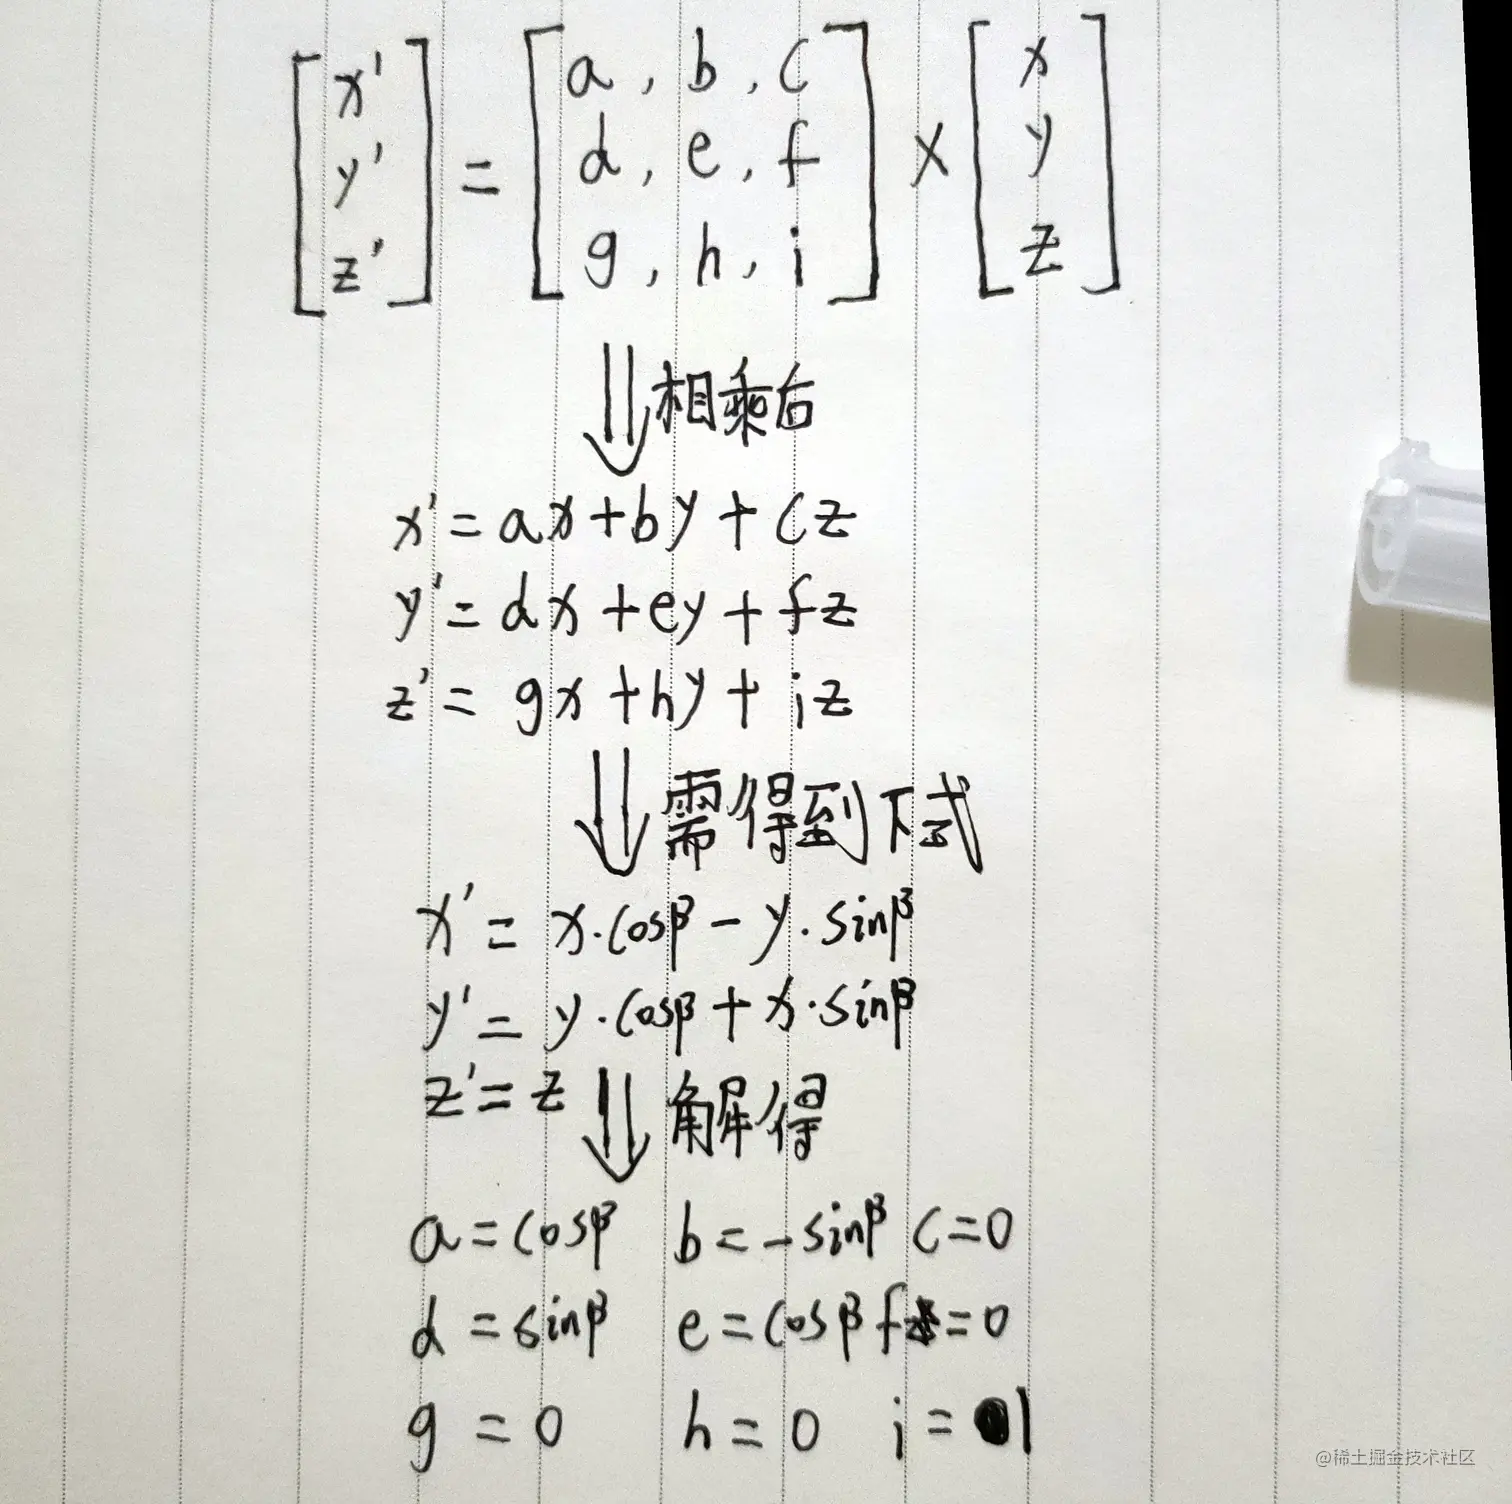 [x'] = [a, b, c] × [x]
[y'] [d, e, f] [y]
[z'] [g, h, i] [z]
⇓ 相乘后
x' = ax + by + cz
y' = dx + ey + fz
z' = gx + hy + iz
⇓ 需得到下式
x' = x·cosβ - y·sinβ
y' = y·cosβ + x·sinβ
z' = z ⇓ 解得
a = cosβ b = -sinβ c = 0
d = sinβ e = cosβ f = 0
g = 0 h = 0 i = 1
@稀土掘金技术社区